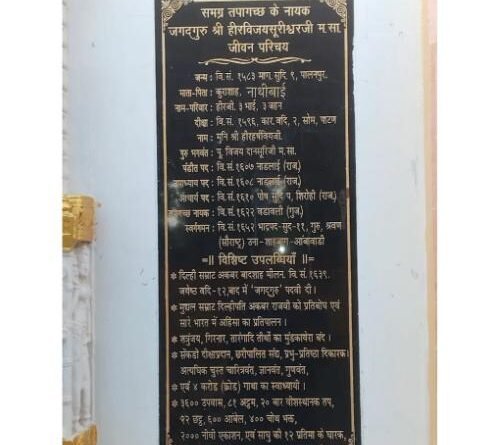 समग्र तपागच्छ के नायक
जगद्गुरु श्री हीरविजयसूरीश्वरजी म.सा.
जीवन परिचय
जन्म : वि.सं. १५८३ माग. सुदि ९, पालनपुर.
माता-पिता : कुराशाह, नाथीबाई
नाम-परिवार : हीरजी, ३ भाई, ३ बहन
दीक्षा : वि.सं. १५९६, कार. वदि, २, सोम, पाटण
नाम : मुनि श्री हीरहर्षविजयजी.
गुरु भगवंत : पू. विजय दानसूरिजी म.सा.
पंडीत पद : वि.सं. १६०७ नाडलाई (राज.)
उपाध्याय पद : वि.सं. १६०८ नाडलाई (राज.)
आचार्य पद : वि.सं. १६१० पोष सुद ५, शिरोही (राज.)
गच्छ नायक : वि.सं. १६२२ वडावली (गुज.)
स्वर्गगमन : वि.सं. १६५२ भाद्रपद-सुद-११, गुरु, श्रवण
(सौराष्ट्र) उना - शाहबाग -आंबावाडी
=॥ विशिष्ट उपलब्धियाँ ॥=
* दिल्ही सम्राट अकबर बादशाह मीलन. वि.सं. १६३९.
ज्येष्ठ वदि-१२, बाद में 'जगद्गुरु' पदवी दी ।
* मुघल सम्राट दिल्हीपति अकबर राजवी को प्रतिबोध एवं
सारे भारत में अहिंसा का प्रतिपालन ।
* शत्रुंजय, गिरनार, तारंगादि तीर्थो का मुंडकावेरा बंद ।
* सेंकडो दीक्षाप्रदान, छरीपालित संघ, प्रभु-प्रतिष्ठा दिकारक.
अत्यधिक चुस्त चारित्रवंत, ज्ञानवंत, गुणवंत,
* एवं ४ करोड (क्रोड) गाथा का स्वाध्यायी ।
* ३६०० उपवास, ८१ अट्ठम, २० बार वीशस्थानक तप,
२२ छट्ठ, ६०० आंबेल, ४०० चोथ भक्त,
२००० नीवी एकाशन, एवं साधु की १२ प्रतिमा के धारक,